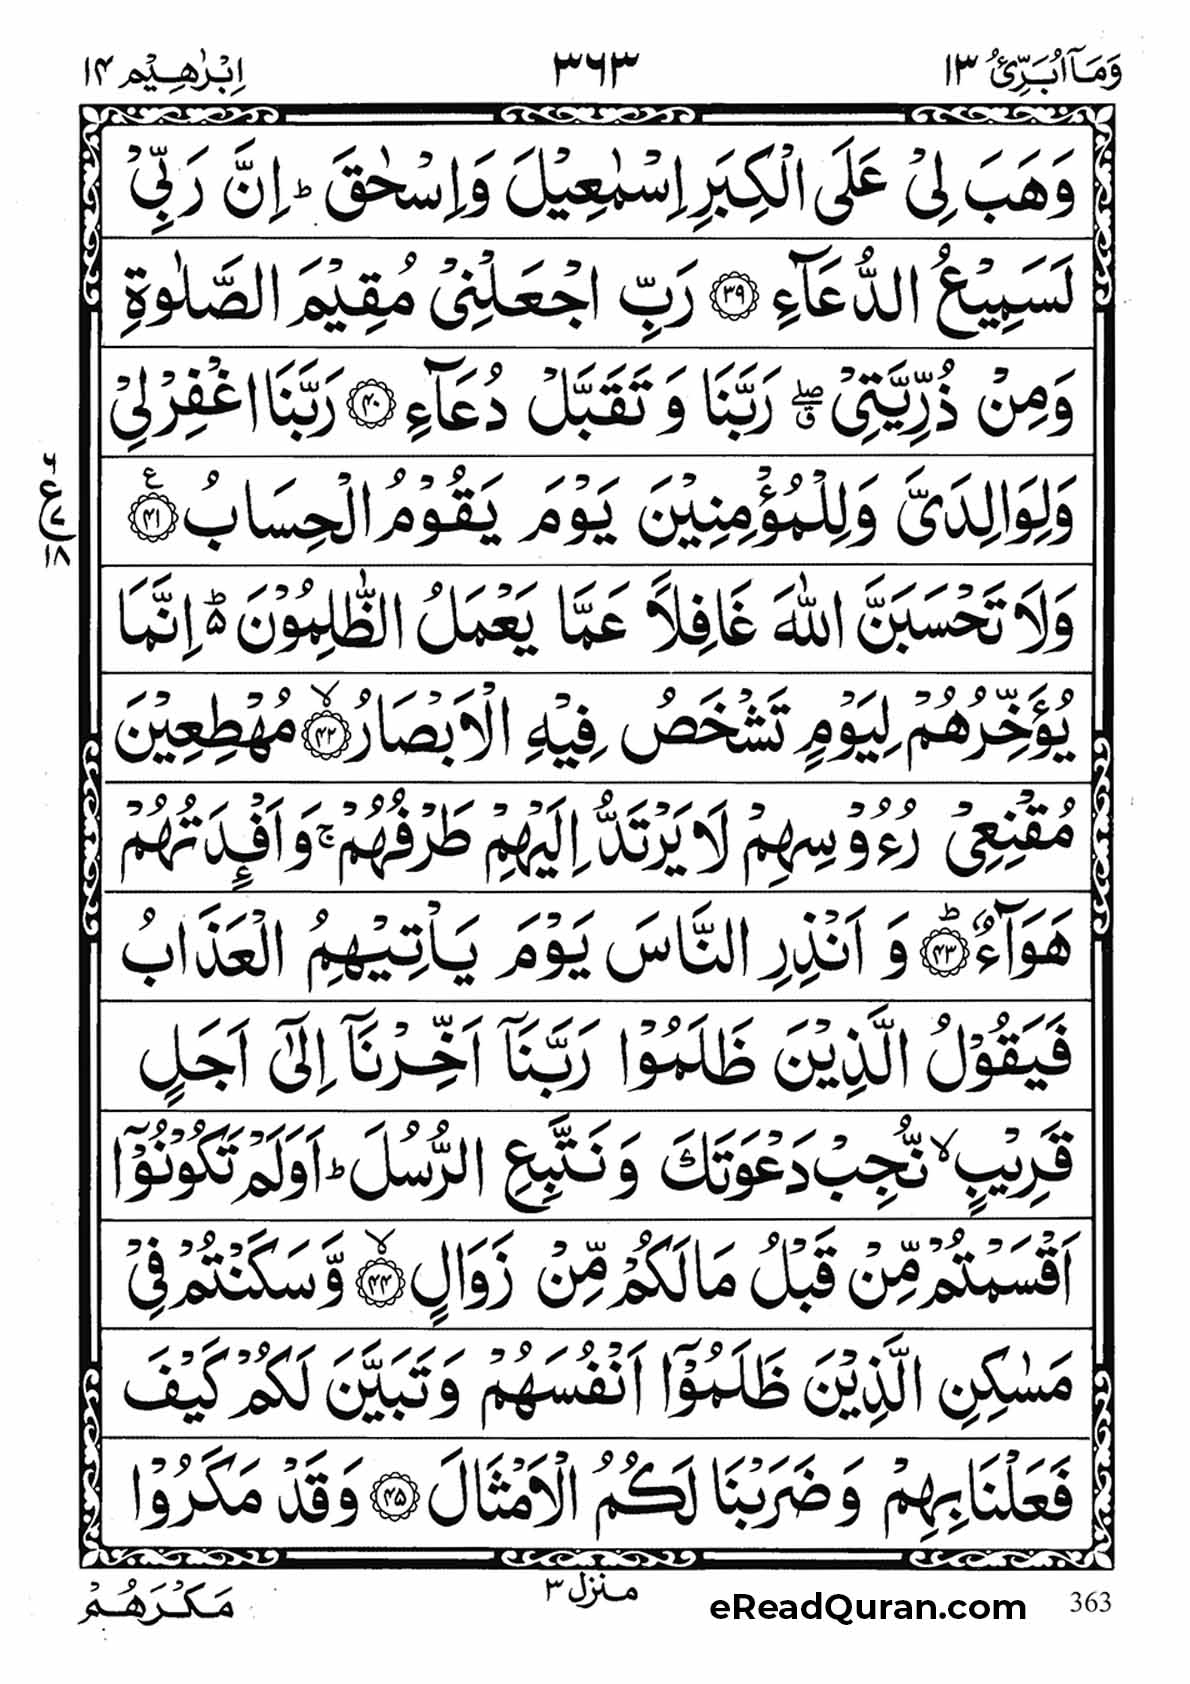 وَمَآ اُبَرِّئُ ١٣ ٣٦٣ اِبْرٰهِيْم ١٤
وَهَبَ لِيْ عَلَى الْكِبَرِ اِسْمٰعِيْلَ وَاِسْحٰقَ ؕ اِنَّ رَبِّيْ
لَسَمِيْعُ الدُّعَآءِ ۝٣٩ رَبِّ اجْعَلْنِيْ مُقِيْمَ الصَّلٰوةِ
وَمِنْ ذُرِّيَّتِيْ ۖق رَبَّنَا وَتَقَبَّلْ دُعَآءِ ۝٤٠ رَبَّنَا اغْفِرْ لِيْ
وَلِوَالِدَيَّ وَلِلْمُؤْمِنِيْنَ يَوْمَ يَقُوْمُ الْحِسَابُ ۝٤١ ع
ع ٦ ٧ ١٨
وَلَا تَحْسَبَنَّ اللّٰهَ غَافِلًا عَمَّا يَعْمَلُ الظّٰلِمُوْنَ ۵ؕ اِنَّمَا
يُؤَخِّرُهُمْ لِيَوْمٍ تَشْخَصُ فِيْهِ الْاَبْصَارُ ۝٤٢ۙ مُهْطِعِيْنَ
مُقْنِعِيْ رُءُوْسِهِمْ لَا يَرْتَدُّ اِلَيْهِمْ طَرْفُهُمْ ۚ وَاَفْـِٕدَتُهُمْ
هَوَآءٌ ۝٤٣ؕ وَاَنْذِرِ النَّاسَ يَوْمَ يَاْتِيْهِمُ الْعَذَابُ
فَيَقُوْلُ الَّذِيْنَ ظَلَمُوْا رَبَّنَآ اَخِّرْنَآ اِلٰٓى اَجَلٍ
قَرِيْبٍ ۙ نُّجِبْ دَعْوَتَكَ وَنَتَّبِعِ الرُّسُلَ ؕ اَوَلَمْ تَكُوْنُوْٓا
اَقْسَمْتُمْ مِّنْ قَبْلُ مَا لَكُمْ مِّنْ زَوَالٍ ۝٤٤ۙ وَّسَكَنْتُمْ فِيْ
مَسٰكِنِ الَّذِيْنَ ظَلَمُوْٓا اَنْفُسَهُمْ وَتَبَيَّنَ لَكُمْ كَيْفَ
فَعَلْنَا بِهِمْ وَضَرَبْنَا لَكُمُ الْاَمْثَالَ ۝٤٥ وَقَدْ مَكَرُوْا
مَكْرَهُمْ منزل ٣ eReadQuran.com 363